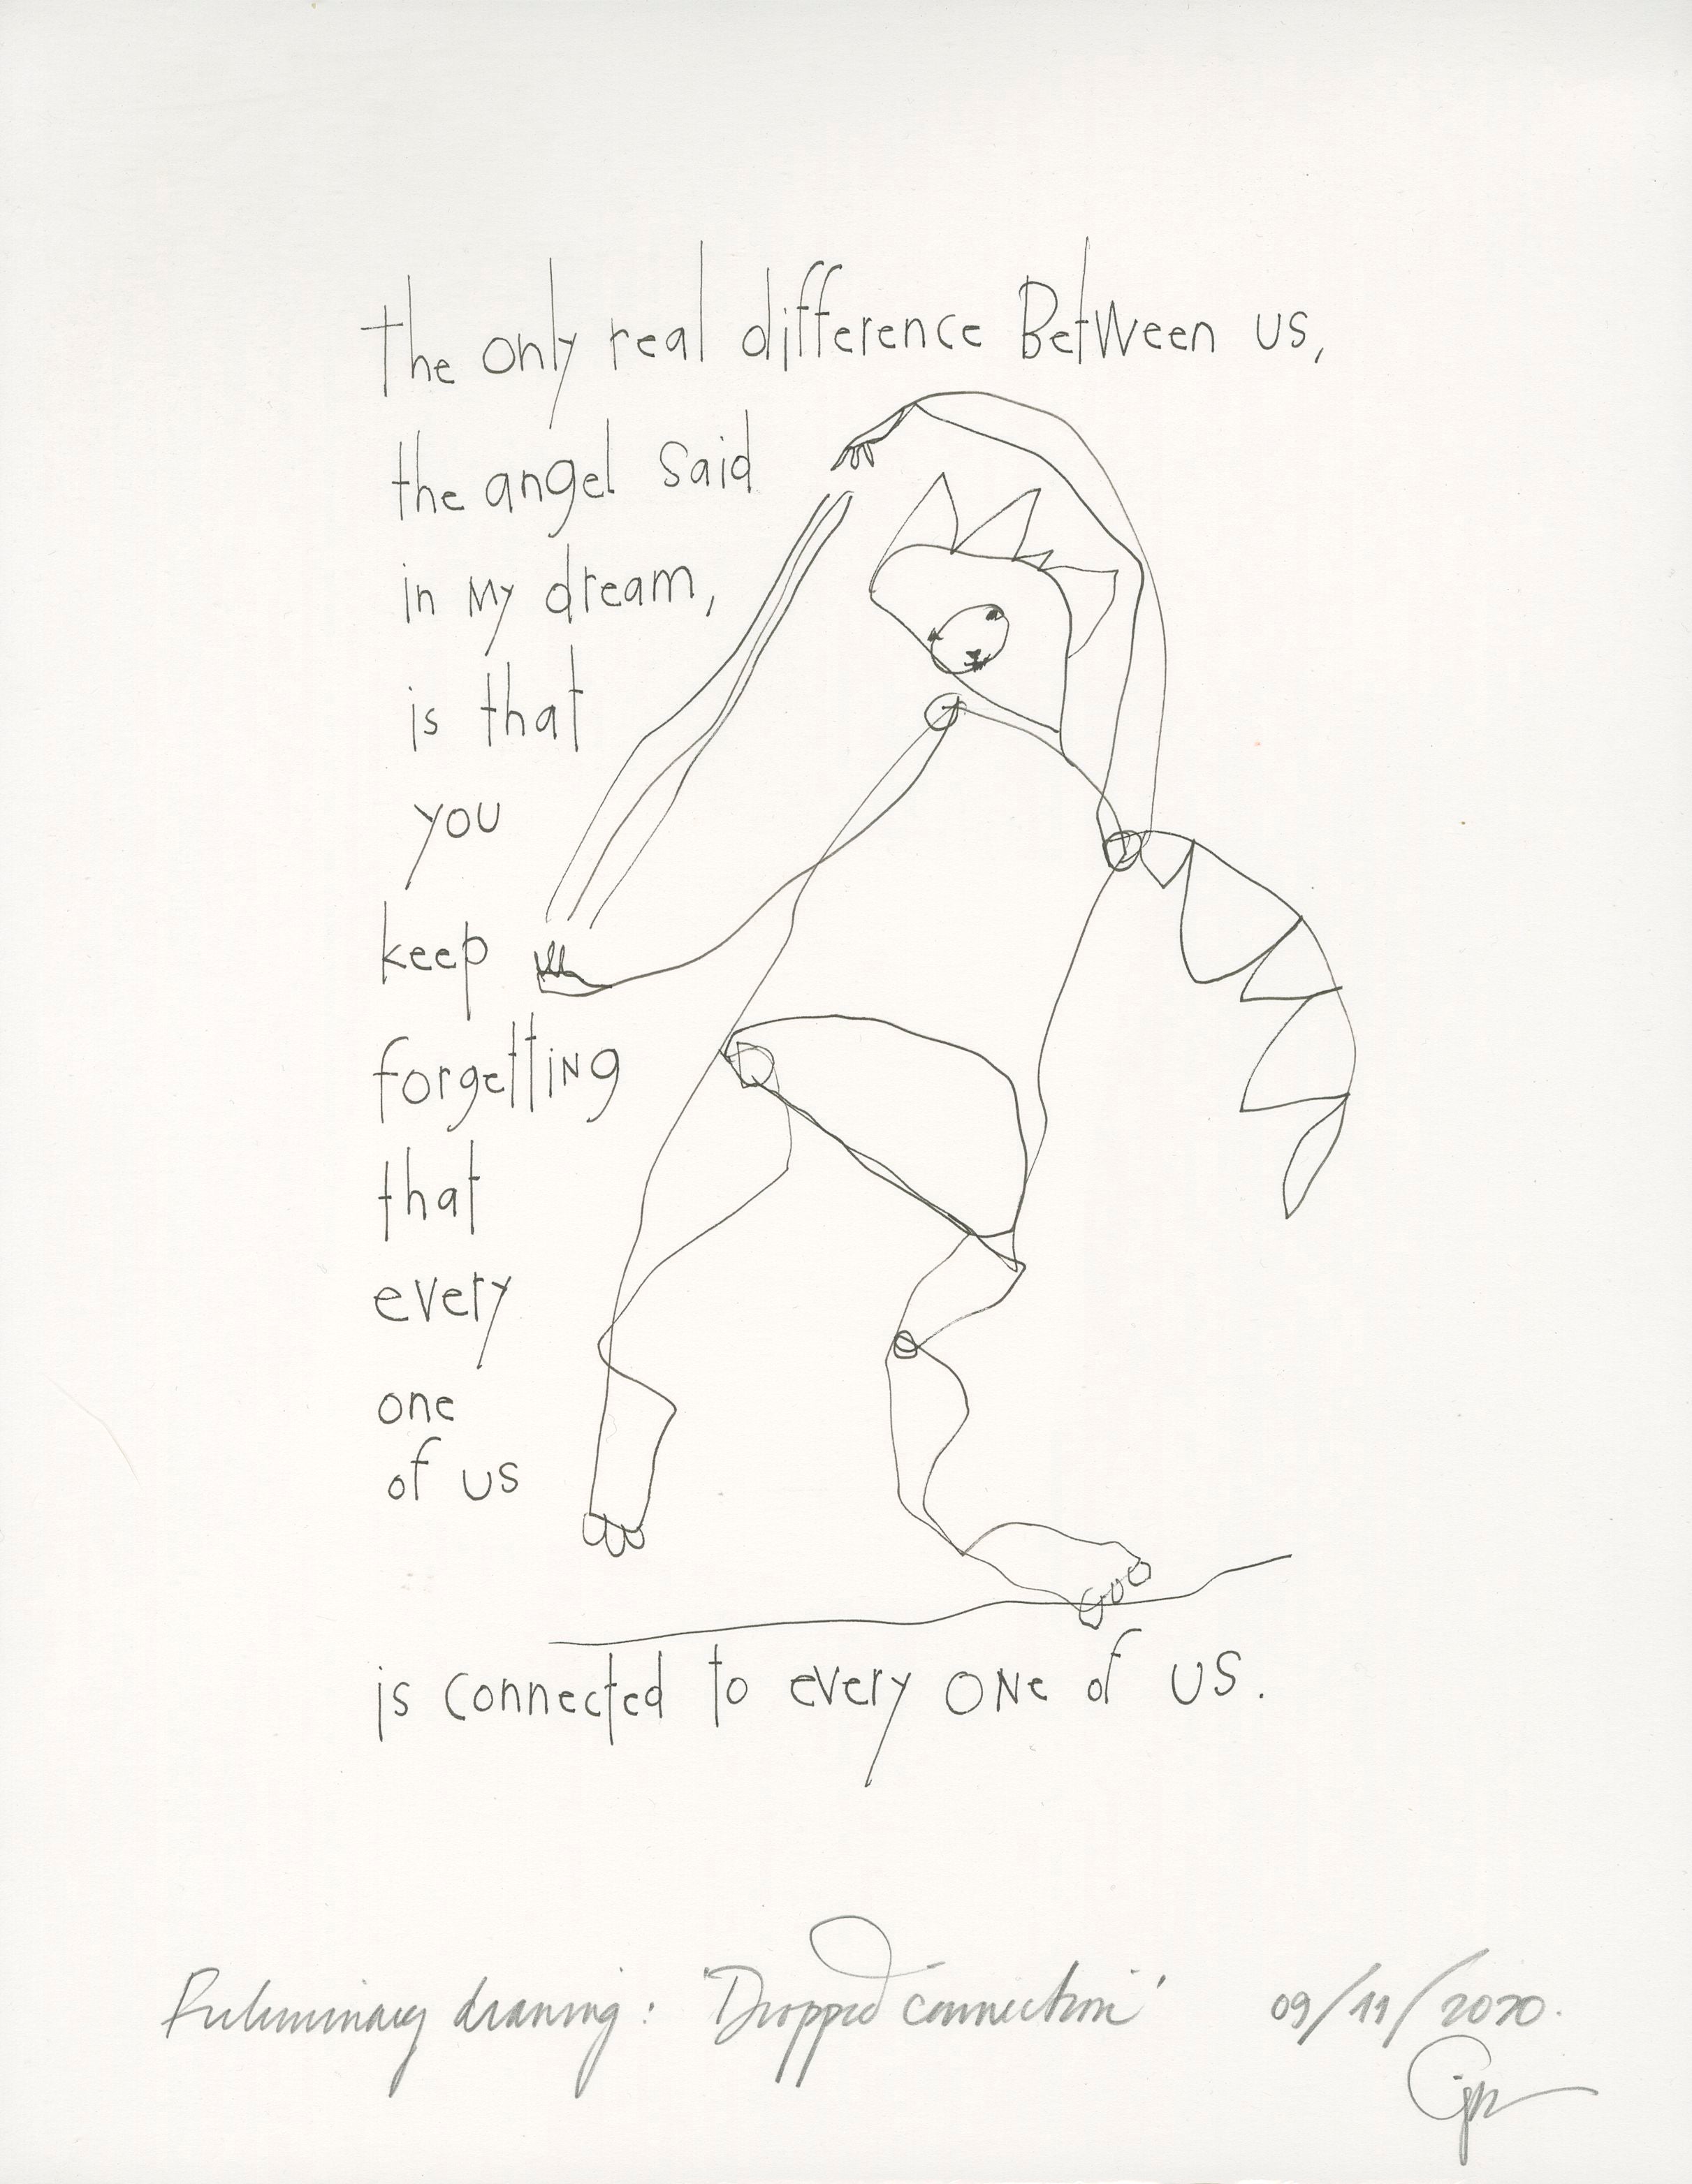 the only real difference BetWeen us,
the angel said
in My dream,
is that
you
keep
forgettiNg
that
every
one
of us
is connected to every oNe of us.
Preliminary drawing: 'Dropped connection' 09/11/2020.